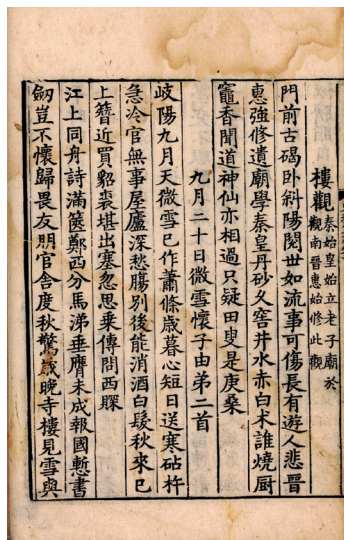 樓觀
秦始皇始立老子廟於
觀南晉惠始修此觀
門前古碣卧斜陽閱世如流事可傷長有遊人悲晉
惠強修遺廟學秦皇丹砂久窖井水赤白术誰燒厨
竈香聞道神仙亦相過只疑田叟是庚桑
九月二十日微雪懷子由弟二首
岐陽九月天微雪已作蕭條歲暮心短日送寒砧杵
急冷官無事屋廬深愁腸別後能消酒白髮秋來已
上簪近買貂裘堪出塞忽思乘傳問西賝
江上同舟詩滿篋鄭西分馬涕垂膺未成報國慙書
劒豈不懷歸畏友朋官舍度秋驚歲晚寺樓見雪與